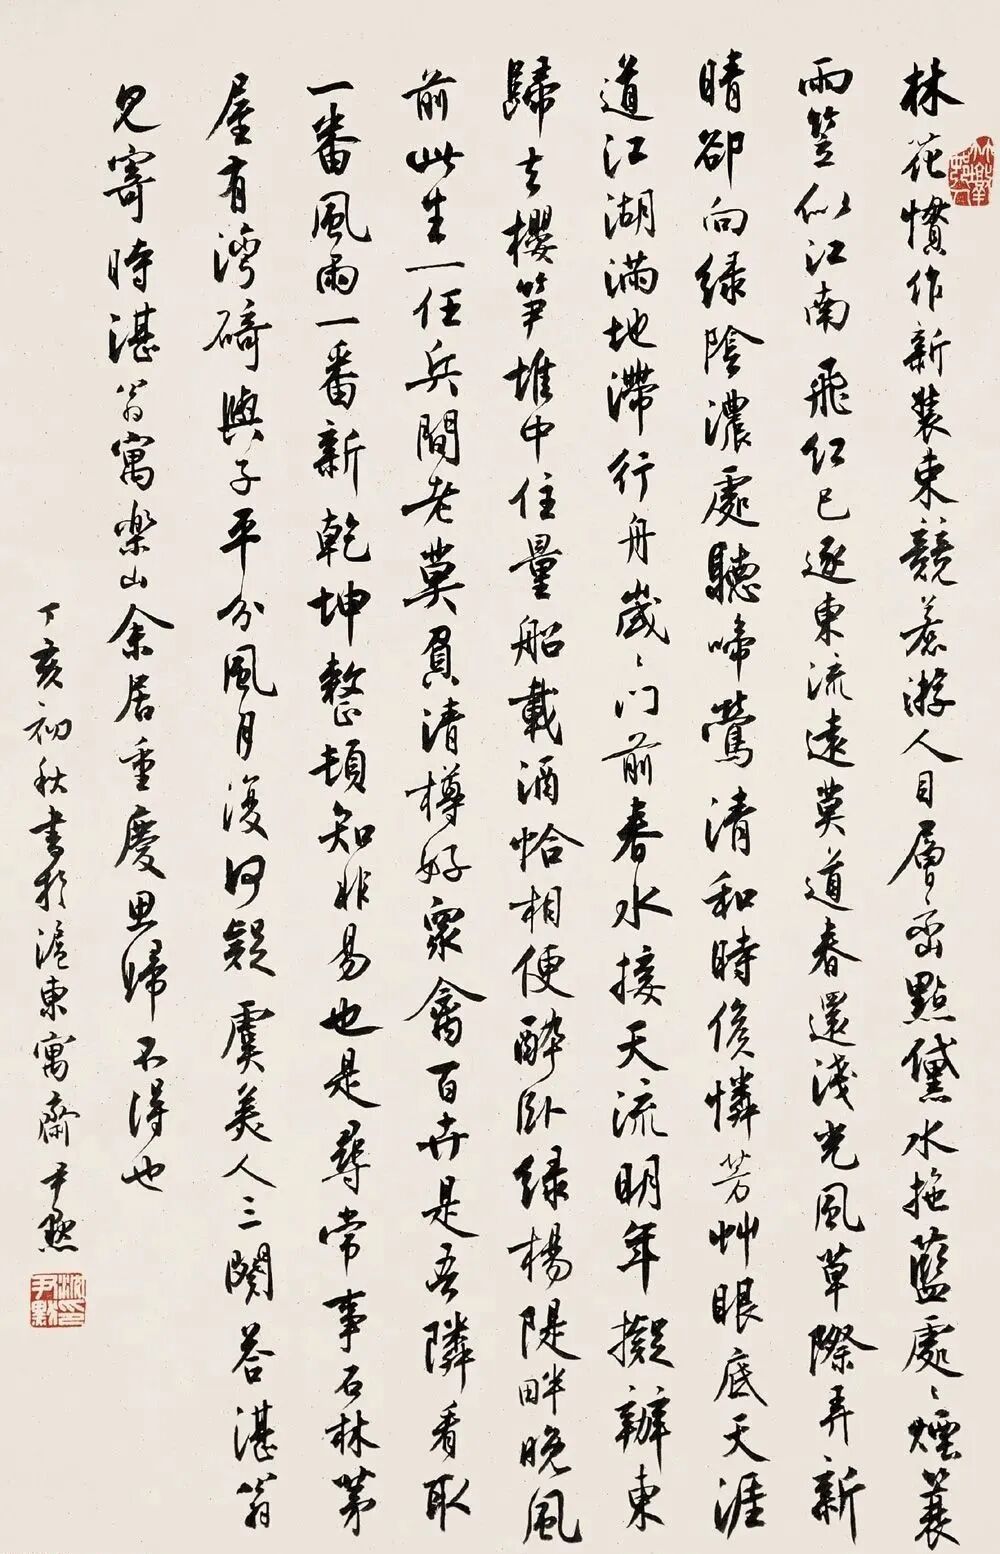 林花慣作新裝束競惹游人目層〻點黛水拖藍處〻煙蓑
雨笠似江南飛紅已逐東流遠莫道春還淺光風草際弄新
晴卻向緑陰濃處聽啼鶯清和時候憐芳艸眼底天涯
道江湖滿地滯行舟歲〻門前春水接天流明年擬辦東
歸去櫻笋堆中住量船載酒恰相便醉臥緑楊隄畔晚風
前此生一任兵間老莫負清樽好眾禽百卉是吾隣看取
一番風雨一番新乾坤整頓知非易也是尋常事石林茅
屋有灣碕與子平分風月復何疑虞美人三闋答湛翁
見寄時湛翁寓樂山余居重慶思歸不得也
丁亥初秋書於滬東寓齋尹默
沈尹默印